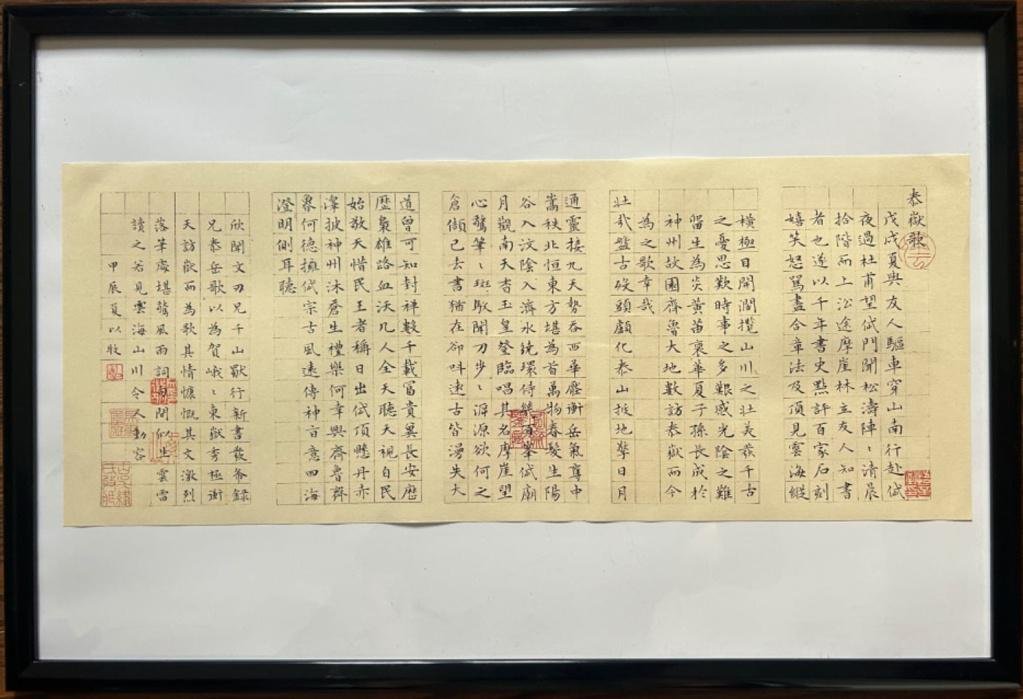 泰嶽歌
戊戌夏與友人驅車穿山南行赴岱
夜過杜甫望岱門聞松濤陣々清晨
拾階而上沿途摩崖林立友人知書
者也遂以千年書史點評百家石刻
嬉笑怒罵盡合章法及頂見雲海縱
橫極目開濶攬山川之壯美發千古
之憂思歎時事之多艱感光陰之難
留生為炎黃苗裔華夏子孫長成於
神州故國齊魯大地數訪泰嶽而今
為之歌幸哉
壯哉盤古殁頭顱化泰山披地擎日月
通靈接九天勢吞西華壓衡岳氣奪中
嵩秩北恒東方堪為首萬物春發生陽
谷入汶陰入濟水鏡環侍繞百峯岱廟
月觀南天杳玉皇登臨唱其名摩崖望
心驚筆々斑駁開刀步々溯源欲何之
倉頡已去書猶在卻叫遠古皆湧失大
道曾可知封禪數千載富貴冀長安歷
歷梟雄諮血沃凡人全天聽天視自民
始敬天惜民王者稱日出岱頂懸丹赤
澤披神州沐蒼生禮樂何幸興齊魯霽
界何德擁岱宗古風遠傳神言意四海
澄明側耳聽
欣聞文刃兄千山獸行新書發斧錄
兄泰岳歌以為賀峨々東嶽夸極衝
天訪嶽而為歌其情慷慨其文激烈
落筆處堪驚風雨詞句間似生雲雷
讀之若見雲海山川令人動容
甲辰夏以牧